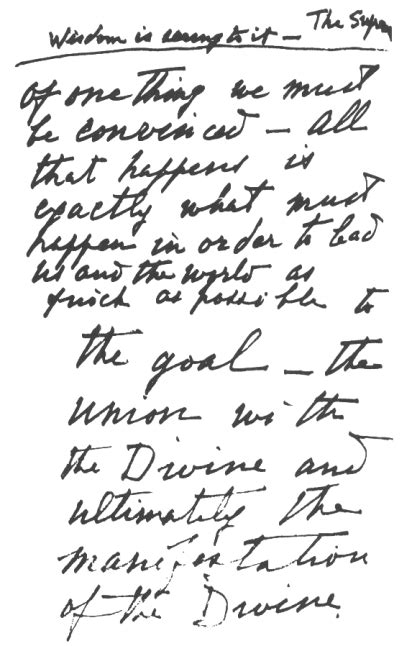 Wisdom is seeing to it — The Supre
of one thing we must
be convinced — all
that happens is
exactly what must
happen in order to lead
us and the world as
quick as possible to
the goal — the
union with
the Divine and
ultimately the
manifestation
of the Divine.